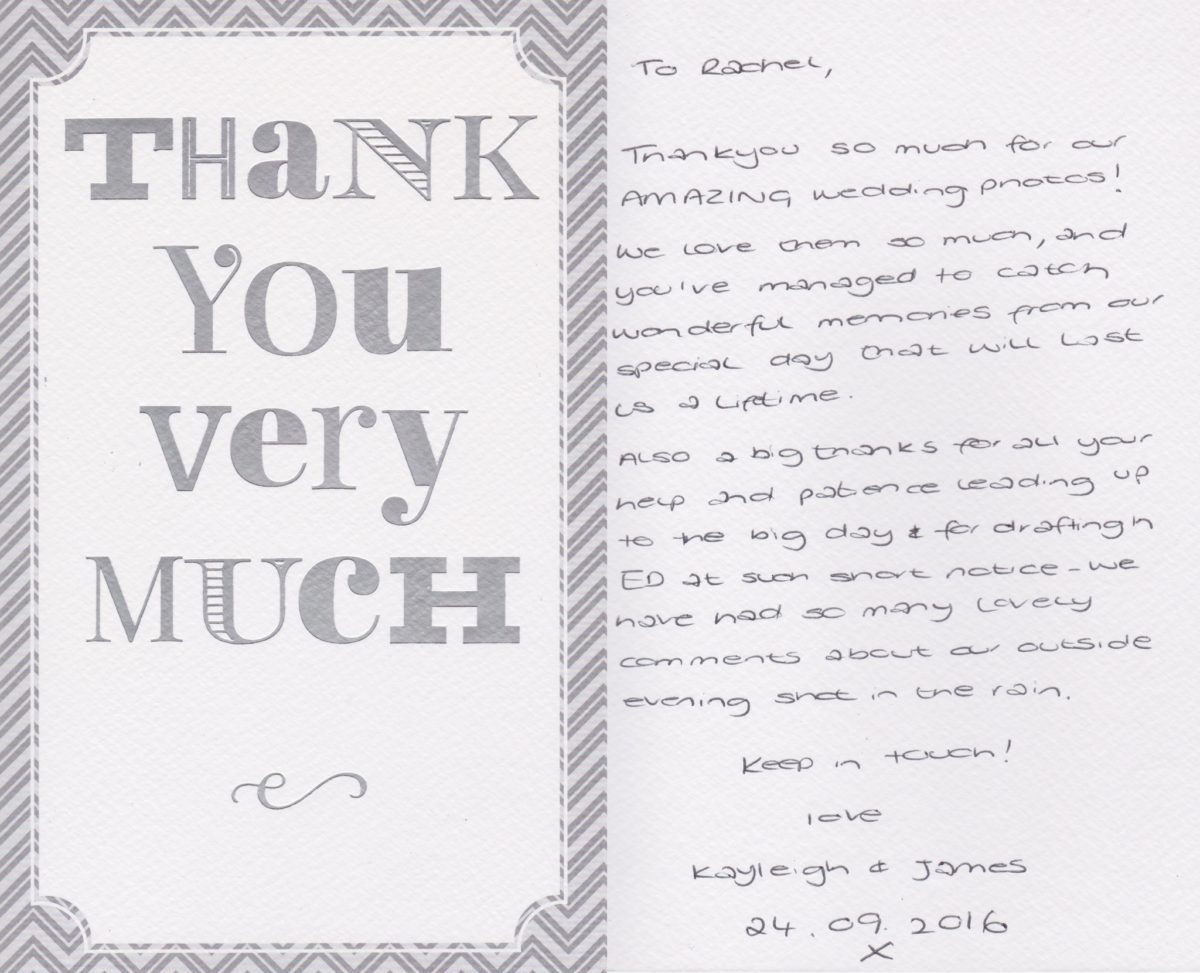 THANK
YOU
very
MUCH
To Rachel,
Thankyou so much for our
AMAZING wedding photos!
We love them so much, and
you've managed to catch
wonderful memories from our
special day that will last
us a lifetime.
Also a big thanks for all your
help and patience leading up
to the big day & for drafting in
ED at such short notice - we
have had so many lovely
comments about our outside
evening shot in the rain.
Keep in touch!
love
Kayleigh & James
24.09.2016
X